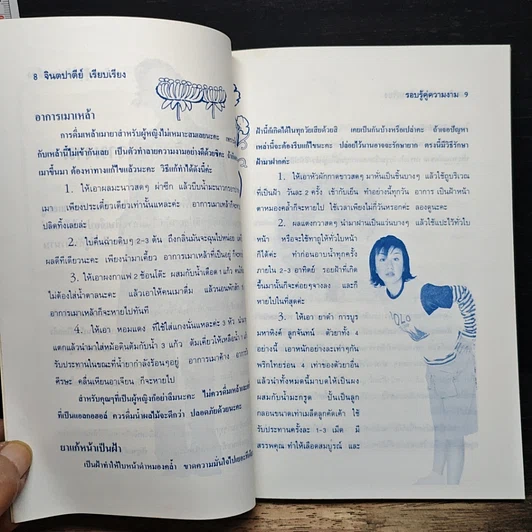 8 จินตปาตีย์ เรียบเรียง
อาการเมาเหล้า
การดื่มเหล้าเมายาสำหรับผู้หญิงไม่เหมาะสมเลยนะคะ
กับเหล้านี้ไม่เข้ากันเลย เป็นตัวทำลายความงามอย่างด้วยซิคะ
เมาขึ้นมา ต้องหาทางแก้ไขแล้วนะคะ วิธีแก้ทำได้ดังนี้ค่ะ
1. ให้เอาผลมะนาวสดๆ ผ่าซีก แล้วบีบน้ำมะนาว
เมา เพียงประเดี๋ยวเดียวเท่านั้นแหละค่ะ อาการเมาเหล้าก็จะ
ปลิดทิ้งเลยล่ะ
2. ใบคื่นฉ่ายดิบๆ 2-3 ต้น ถึงกลิ่นมันจะฉุนไปหน่อย
ผลดีทีเดียวนะคะ เพียงนำมาเคี้ยว อาการเมาเหล้าที่เป็นอยู่ก็จะ
3. ให้เอาผงกาแฟ 2 ช้อนโต๊ะ ผสมกับน้ำเดือด 1 แก้ว
ไม่ต้องใส่น้ำตาลนะคะ แล้วเอาให้คนเมาดื่ม แล้วนอนพัก
อาการเมาเหล้าก็จะหายไปทันที
4. ให้เอา หอมแดง ที่ใช้ใส่แกงนั่นแหละค่ะ 3 หัว
แตกแล้วนำมาใส่หม้อดินต้มกับน้ำ 3 แก้ว ต้มเคี่ยวให้เหลือน้ำ
รับประทานในขณะที่น้ำยากำลังร้อนๆอยู่ อาการเมาค้าง
ศีรษะ คลื่นเหียนอาเจียน ก็จะหายไป
สำหรับคุณๆที่เป็นผู้หญิงก็อย่าลืมนะคะ ไม่ควรดื่มเหล้า
ที่เป็นแอลกอฮอล์ ควรดื่มน้ำผลไม้จะดีกว่า ปลอดภัยด้วยนะคะ
ยาแก้หน้าเป็นฝ้า
เป็นฝ้าทำให้ใบหน้าดำหมองคล้ำ ขาดความมั่นใจไป
รอบรู้คู่ความงาม 9
ฝ้านี้ก็เกิดได้ในทุกวัยเสียด้วยสิ เคยเป็นกันบ้างหรือเปล่าคะ ถ้าเจอปัญหา
เหล่านี้จะต้องรีบแก้ไขนะคะ ปล่อยไว้นานอาจจะรักษายาก ตรงนี้มีวิธีรักษา
ฝ้ามาฝากค่ะ
1. ให้เอาหัวผักกาดขาวสดๆ มาหั่นเป็นชิ้นบางๆ แล้วใช้ถูบริเวณ
ที่เป็นฝ้า วันละ 2 ครั้ง เช้ากับเย็น ทำอย่างนี้ทุกวัน อาการ เป็นฝ้าหน้า
ดำหมองคล้ำก็จะหายไป ใช้เวลาเพียงไม่กี่วันหรอกค่ะ ลองดูนะคะ
2. ผลแตงกวาสดๆ นำมาฝานเป็นแว่นบางๆ แล้วใช้แปะไว้ทั่วใบ
หน้า หรือจะใช้ทาถูให้ทั่วใบหน้า
ก็ได้ค่ะ ทำก่อนอาบน้ำทุกครั้ง
ภายใน 2-3 อาทิตย์ รอยฝ้าที่เกิด
ขึ้นมานั้นก็จะค่อยๆจางลง และก็
หายไปในที่สุดค่ะ
3. ให้เอา ยาดำ การบูร
มหาหิงค์ ลูกจันทน์ ตัวยาทั้ง 4
อย่างนี้ เอาหนักอย่างละเท่าๆกัน
พริกไทยร่อน 4 เท่าของตัวยาอื่น
แล้วนำทั้งหมดนี้มาบดให้เป็นผง
ผสมกับน้ำมะกรูด ปั้นเป็นลูก
กลอนขนาดเท่าเมล็ดลูกคัดเค้า ใช้
รับประทานครั้งละ 1-3 เม็ด มี
สรรพคุณ ทำให้เลือดสมบูรณ์ และ